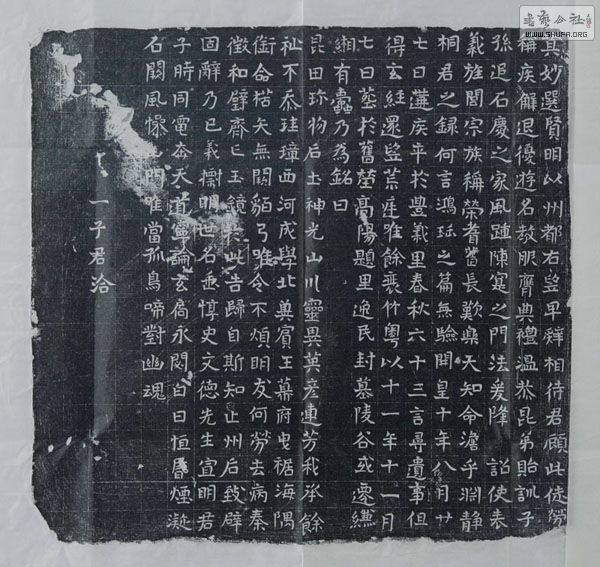 書藝公社
WWW.SHUFA.ORG
其妙選賢明以州都右望早辟相待君顧此徒勞
稱疾辭退優遊名教服膺典禮溫恭昆弟貽訓子
孫追石慶之家風踵陳寔之門法爰降詔使表
義旌閭宗族稱榮耆舊長歎樂天知命澹乎淵靜
桐君之錄何言鴻珎之篇無驗開皇十年八月廿
七日遘疾卒於豐義里春秋六十三言尋遺事但
得玄經還望荒庭唯餘衰竹粵以十一年十一月
七日葬於舊塋高陽題里逸民封墓陵谷或遷縑
緗有蠹乃為銘曰
昆田珎物后土神光山川靈異英彥連芳我承餘
祉不忝珪璋西河成學北冀賓王幕府曳裾海隅
銜命楛矢無闕貊弓唯令不煩明友何勞去病秦
徵和璧齊亡玉鏡於此告歸自斯知止州后致辟
固辭乃已義擅明世名垂惇史文德先生宣明君
子時同電奔天道寧論玄扃永閟白日恒昏煙凝
石闕風慘門唯當孤鳥啼對幽魂
一子君洽